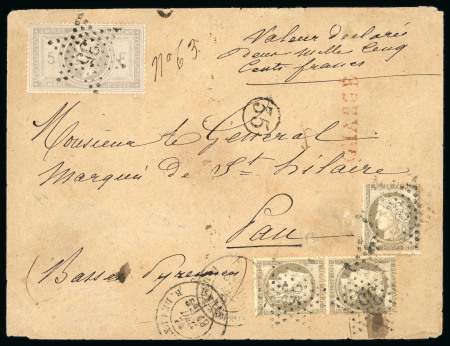 Valeur déclarée
deux mille cinq
Cents francs
No 63.
CHARGÉ
35
Monsieur le General
Marquis de St. Hilaire
Pau
(Basses Pyrenees